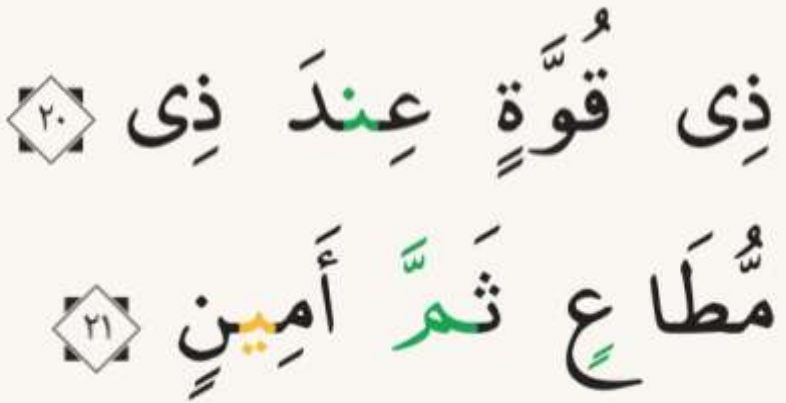 ذِى قُوَّةٍ عِندَ ذِى ٢٠
مُّطَاعٍ ثَمَّ أَمِينٍ ٢١